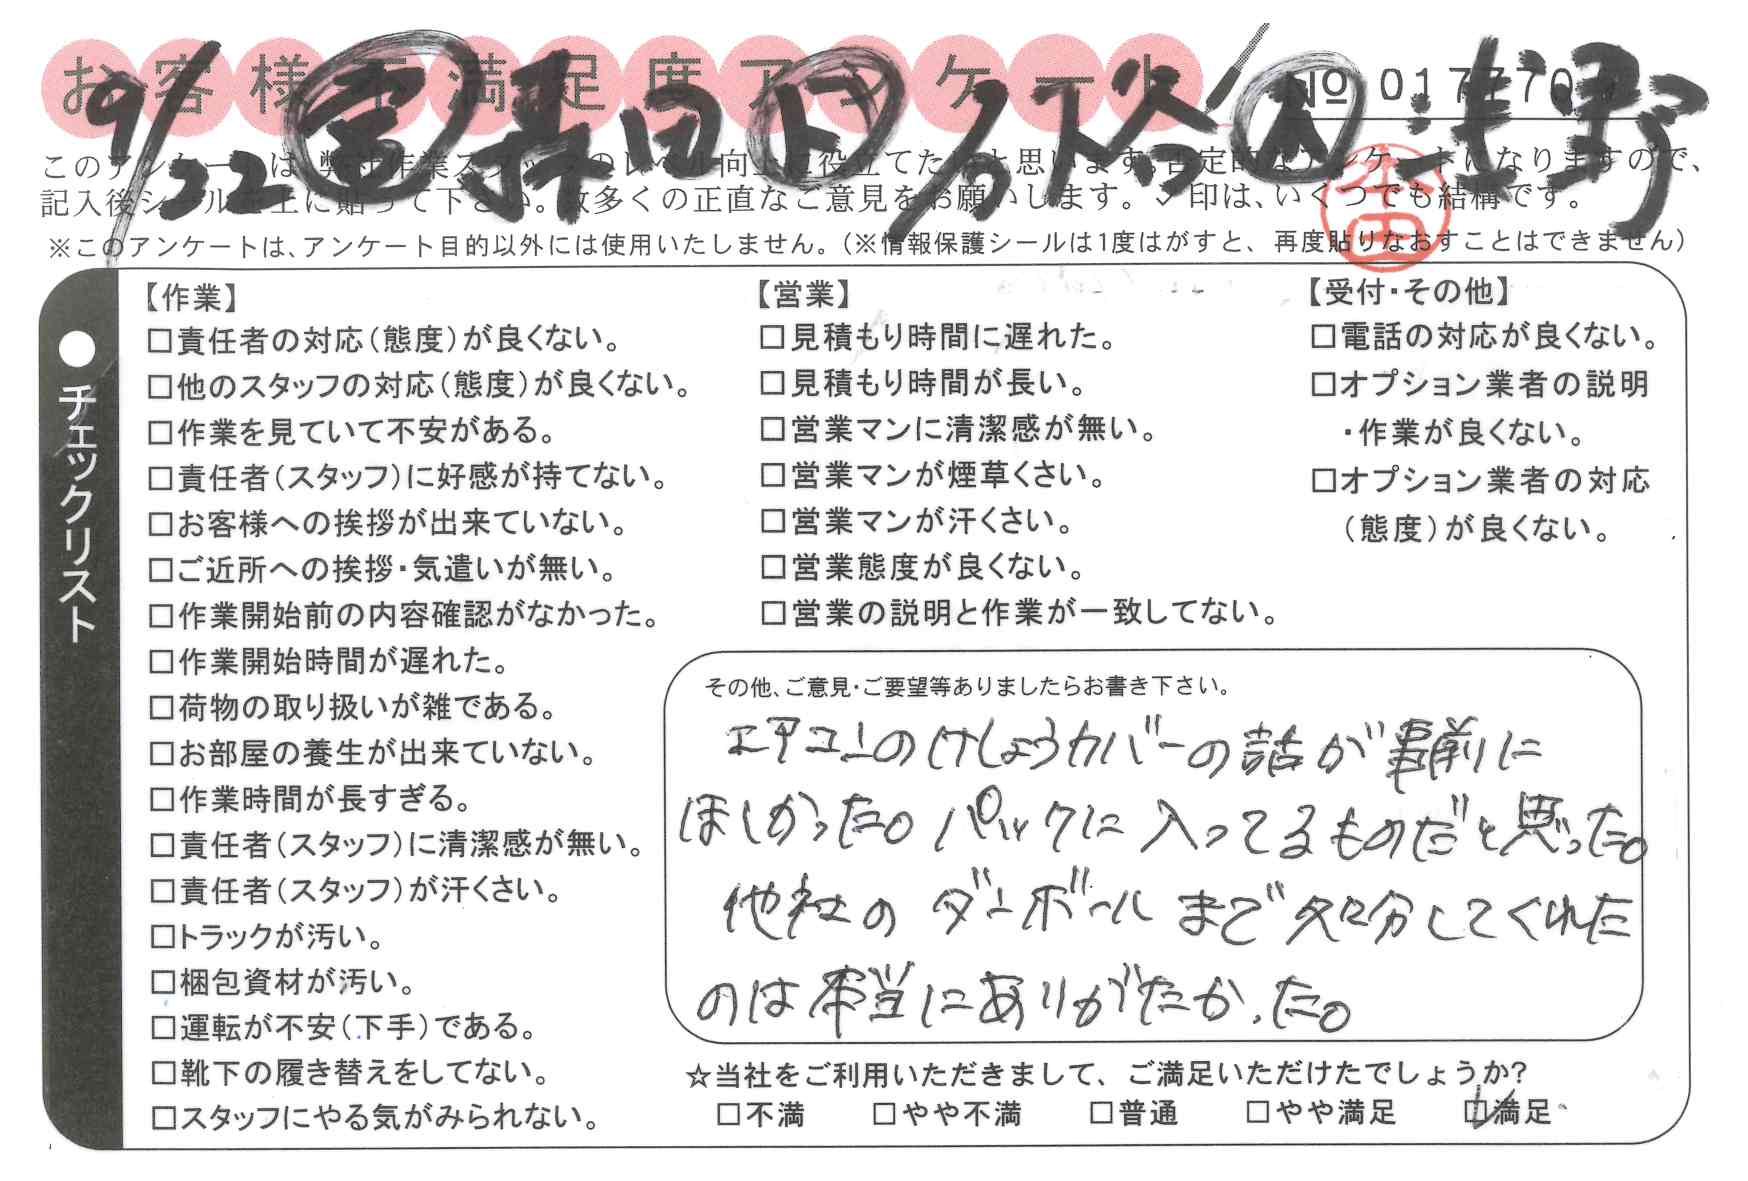 お客様不満足度アンケート
№ 017770
9/22 営 森田 ト 作 浅野
このアンケートは、弊社作業スタッフのレベル向上に役立てたいと思います。否定的なアンケートになりますので、
記入後シールを上に貼って下さい。数多くの正直なご意見をお願いします。✓印は、いくつでも結構です。
※このアンケートは、アンケート目的以外には使用いたしません。（※情報保護シールは1度はがすと、再度貼りなおすことはできません）
●チェックリスト
【作業】
□責任者の対応（態度）が良くない。
□他のスタッフの対応（態度）が良くない。
□作業を見ていて不安がある。
□責任者（スタッフ）に好感が持てない。
□お客様への挨拶が出来ていない。
□ご近所への挨拶・気遣いが無い。
□作業開始前の内容確認がなかった。
□作業開始時間が遅れた。
□荷物の取り扱いが雑である。
□お部屋の養生が出来ていない。
□作業時間が長すぎる。
□責任者（スタッフ）に清潔感が無い。
□責任者（スタッフ）が汗くさい。
□トラックが汚い。
□梱包資材が汚い。
□運転が不安（下手）である。
□靴下の履き替えをしてない。
□スタッフにやる気がみられない。
【営業】
□見積もり時間に遅れた。
□見積もり時間が長い。
□営業マンに清潔感が無い。
□営業マンが煙草くさい。
□営業マンが汗くさい。
□営業態度が良くない。
□営業の説明と作業が一致してない。
【受付・その他】
□電話の対応が良くない。
□オプション業者の説明
・作業が良くない。
□オプション業者の対応
（態度）が良くない。
その他、ご意見・ご要望等ありましたらお書き下さい。
エアコンのけしょうカバーの話が事前に
ほしかった。パックに入ってるものだと思った。
他社のダンボールまで処分してくれた
のは本当にありがたかった。
☆当社をご利用いただきまして、ご満足いただけたでしょうか?
□不満 □やや不満 □普通 □やや満足 ☑満足